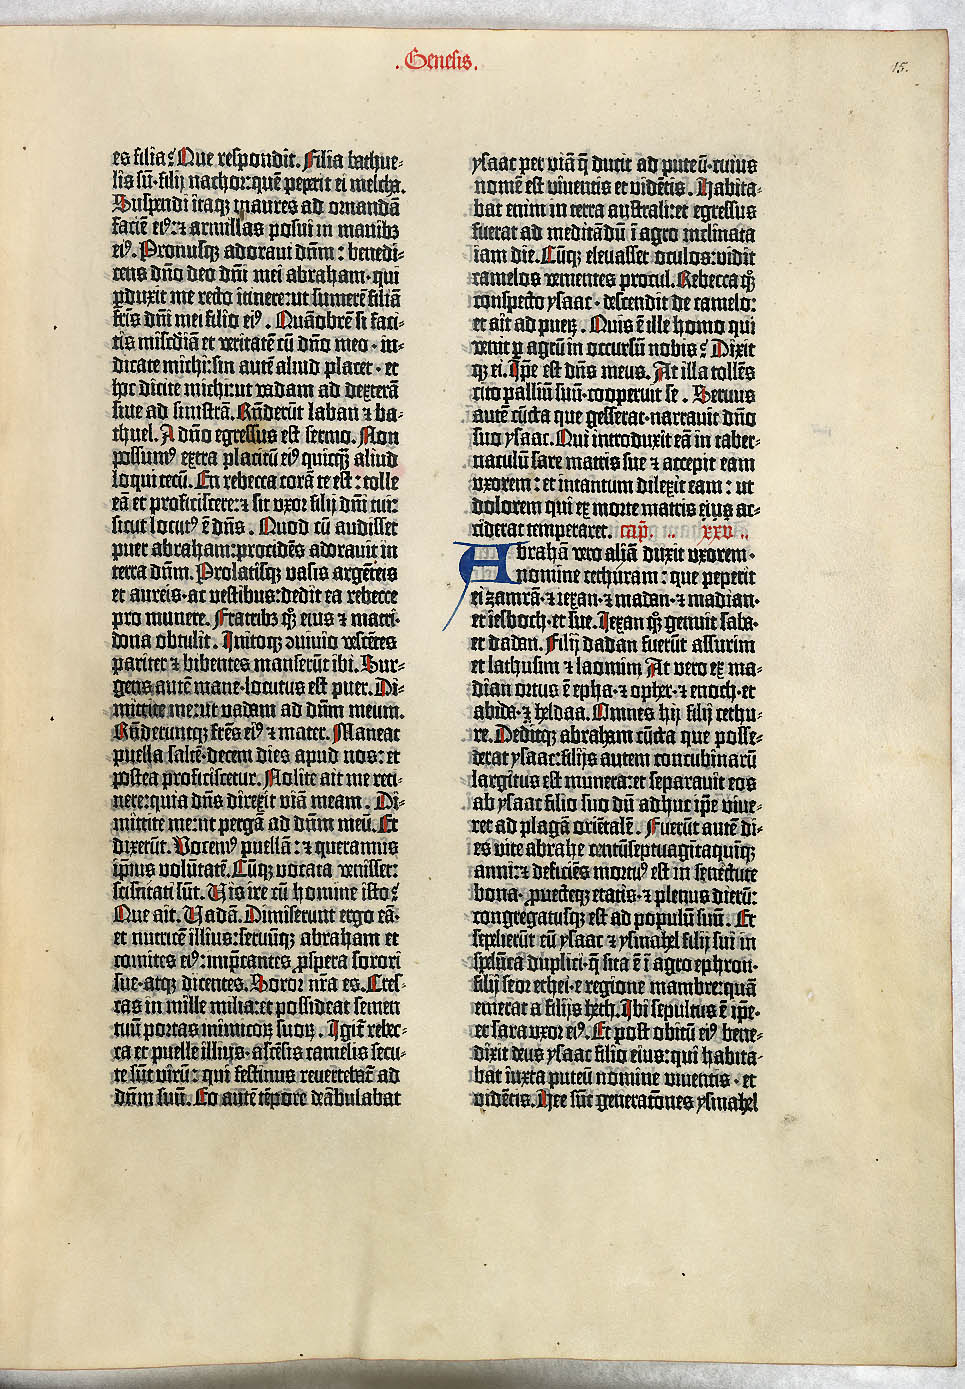 .Genesis.
15.
es filia? Que respondit. Filia bathue-
lis sū·filij nachor:quē peperit ei melcha.
Suspendi itaqꝫ inaures ad ornandā
faciē eiꝰ:⁊ armillas posui in manibꝫ
eiꝰ. Pronusqꝫ adoraui dn̄m : benedi-
cens dn̄o deo dn̄i mei abraham·qui
ꝑduxit me recto itinere:ut sumerē filiā
fr̄is dn̄i mei filio eiꝰ. Quāobrē si faci-
tis misc̄diā et veritatē cū dn̄o meo·in-
dicate michi:sin autē aliud placet·et
hoc dicite michi:ut vadam ad dexterā
siue ad sinistrā. Rn̄derūt laban ⁊ ba-
thuel. A dn̄o egressus est sermo. Non
possumꝰ extra placitū eiꝰ quicq̄ꝫ aliud
loqui tecū. En rebecca corā te est : tolle
eā et proficiscere:⁊ sit vxor filij dn̄i tui:
sicut locutꝰ ē dn̄s. Quod cū audisset
puer abraham:procidēs adorauit in
terra dn̄m. Prolatisqꝫ vasis argēteis
et aureis·ac vestibus:dedit ea rebecce
pro munere. Fratribꝫ qꝫ̄ eius ⁊ matri·
dona obtulit. Initoqꝫ ꝯuiuio vescētes
pariter ⁊ bibentes manserūt ibi. Sur-
gens autē mane·locutus est puer. Di-
mittite me:ut vadam ad dn̄m meum.
Rn̄deruntqꝫ fr̄es eiꝰ ⁊ mater. Maneat
puella saltē·decem dies apud nos: et
postea proficiscetur. Nolite ait me reti-
nere:quia dn̄s direxit viā meam. Di-
mittite me:ut pergā ad dn̄m meū. Et
dixerūt. Vocemꝰ puellā : ⁊ queramus
ip̄ius volūtatē. Cūqꝫ vocata venisset:
sciscitati sūt. Vis ire cū homine isto?
Que ait. Vadā. Dimiserunt ergo eā·
et nutricē illius:seruūqꝫ abraham et
comites eiꝰ:imp̄cantes ꝓspera sorori
sue·atqꝫ dicentes. Soror nr̄a es. Cres-
cas in mille milia:et possideat semen
tuū portas inimicoꝝ suoꝝ. Igit̄ rebec-
ca et puelle illius·ascēsis camelis secu-
te sūt virū: qui festinus reuertebat̄ ad
dn̄m suū. Eo autē tēpore deābulabat
ysaac per viā q̄ ducit ad puteū·cuius
nomē est viuentis et vidētis. Habita-
bat enim in terra australi:et egressus
fuerat ad meditādū ī agro inclinata
iam die. Cūqꝫ eleuasset oculos:vidit
camelos venientes procul. Rebecca qꝫ̄
conspecto ysaac·descendit de camelo:
et ait ad pueꝝ. Quis ē ille homo qui
venit ꝑ agrū in occursū nobis? Dixit
qꝫ ei. Ip̄e est dn̄s meus. At illa tollēs
cito palliū suū·cooperuit se. Seruus
autē cūcta que gesserat·narrauit dn̄o
suo ysaac. Qui introduxit eā in taber-
naculū sare matris sue ⁊ accepit eam
vxorem : et intantum dilexit eam : ut
dolorem qui ex morte matris eius ac-
ciderat temperaret. cap̄. .. xxv ..
Abrahā vero aliā duxit vxorem·
nomine cethuram : que peperit
ei zamrā·⁊ iexan·⁊ madan·⁊ madian·
et iesboch·et sue. Iexan qꝫ̄ genuit saba·
et dadan. Filij dadan fuerūt assurim
et lathusim ⁊ laomim At vero ex ma-
dian ortus ē epha·⁊ opher·⁊ enoch·et
abida·⁊ heldaa. Omnes hij filij cethu-
re. Deditqꝫ abraham cūcta que posse-
derat ysaac:filijs autem concubinarū
largitus est munera:et separauit eos
ab ysaac filio suo dū adhuc ip̄e viue-
ret ad plagā oriētalē. Fuerūt autē di-
es vite abrahe centūseptuagītaquīqꝫ
anni:⁊ deficiēs mortuꝰ est in senectute
bona·ꝓuecteqꝫ etatis·⁊ plenus dierū:
congregatusqꝫ est ad populū suū. Et
sepelierūt eū ysaac ⁊ ysmahel filij sui in
spelūca duplici·q̄ sita ē ī agro ephron·
filij seor ethei·e regione mambre:quā
emerat a filijs heth. Ibi sepultus ē ip̄e·
et sara vxor eiꝰ. Et post obitū eiꝰ bene-
dixit deus ysaac filio eius:qui habita-
bat iuxta puteū nomine viuentis·et
vidētis. Hee sūt generatōnes ysmahel